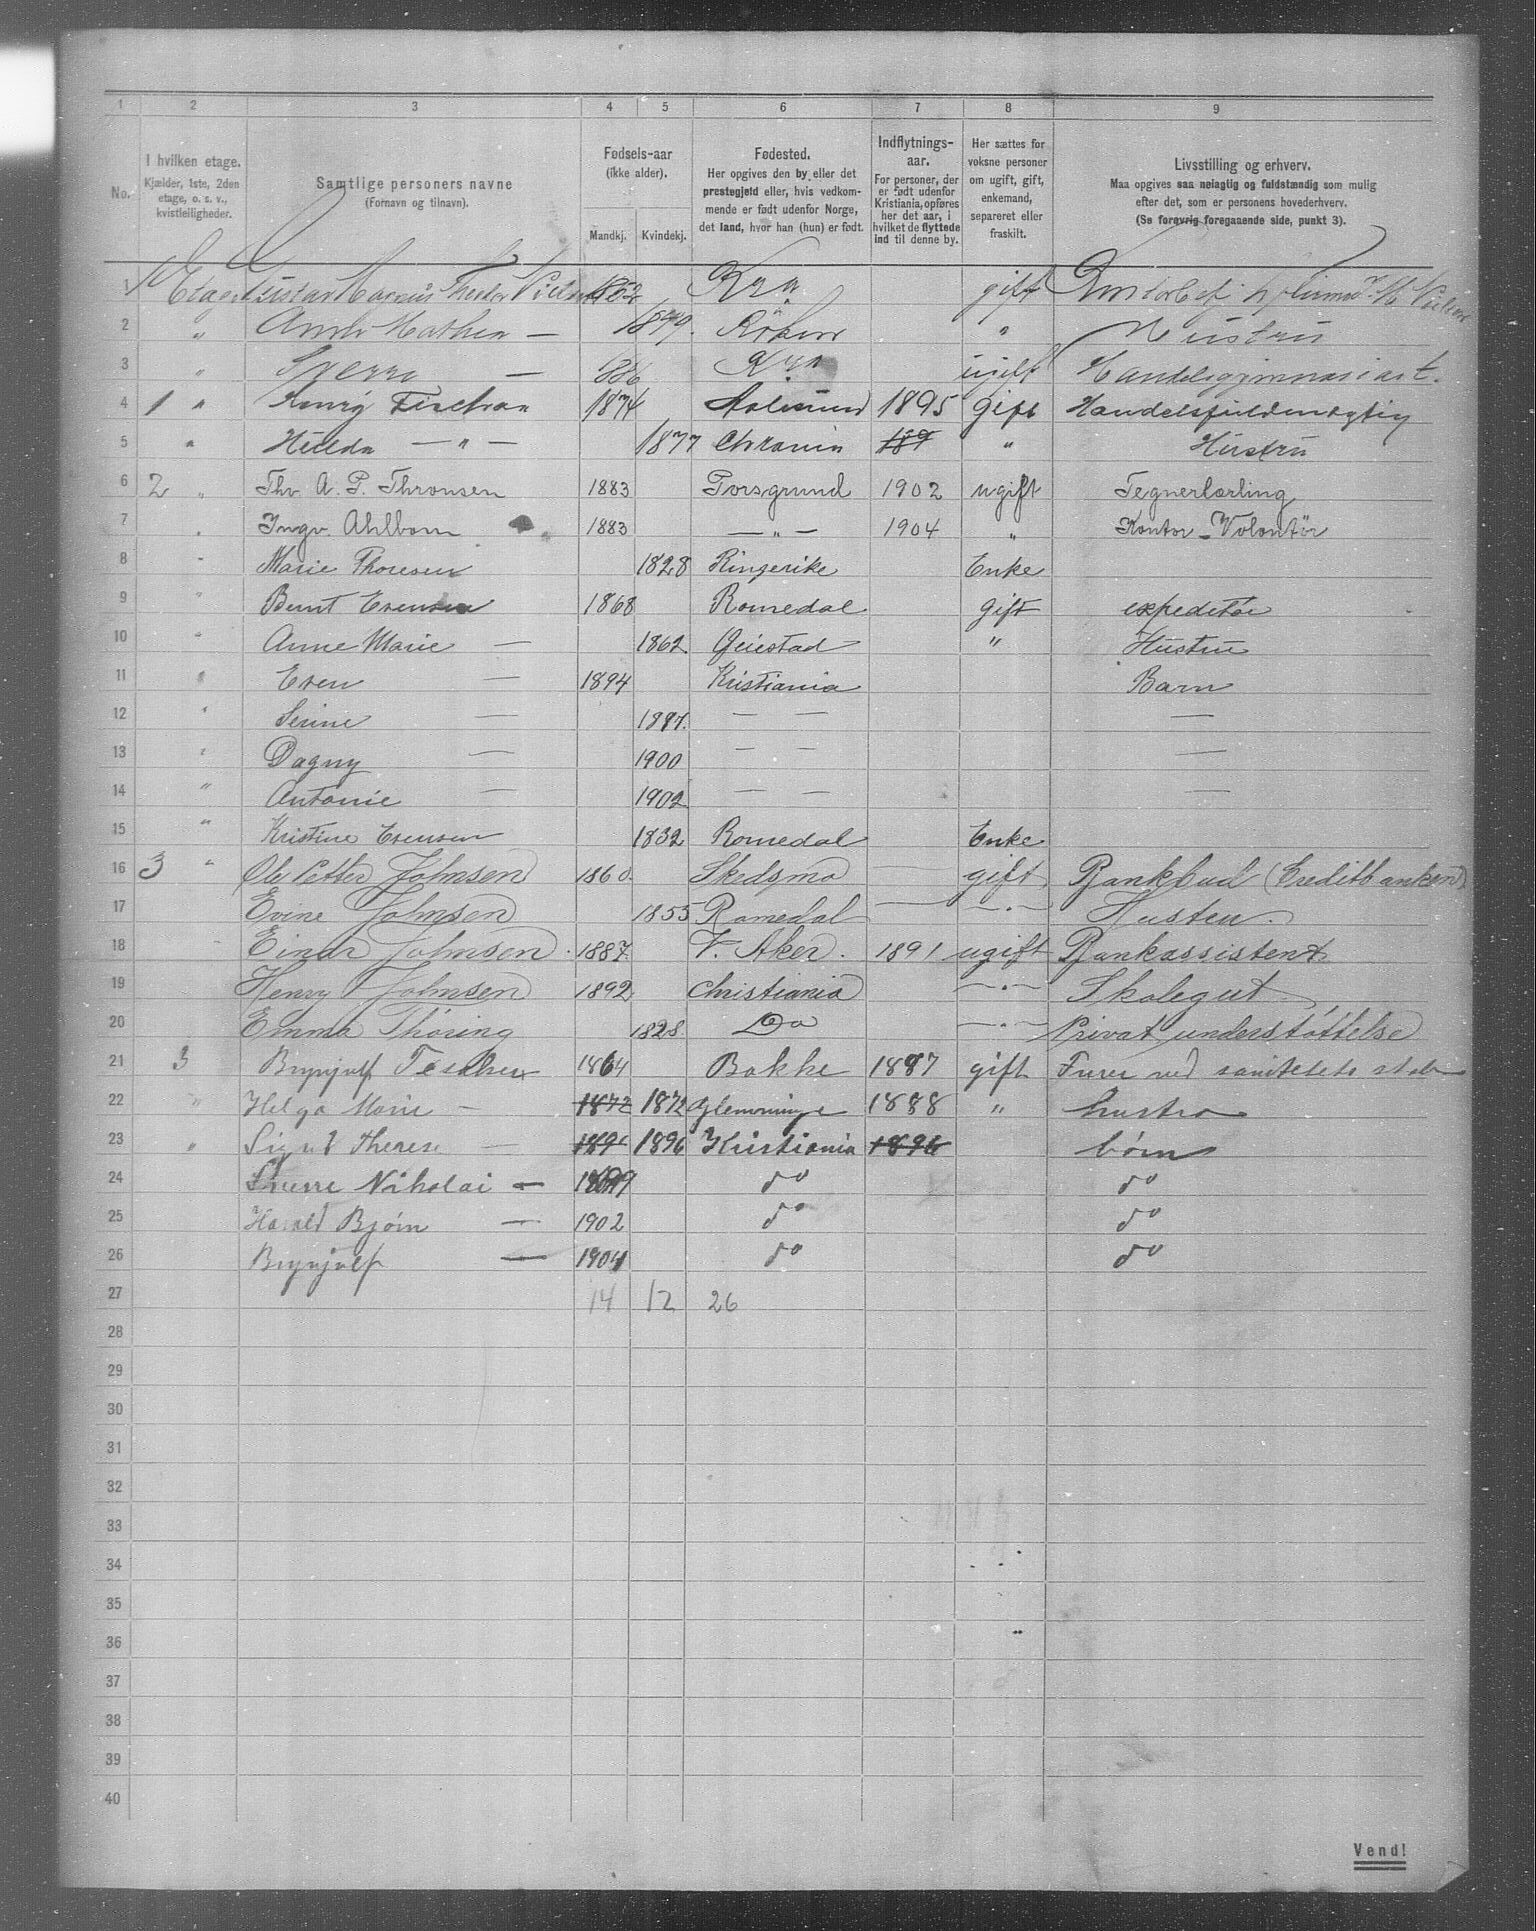 1 2 3 4 5 6 7 8 9
No. I hvilken etage. Kjælder, 1ste, 2den etage, o. s. v., kvistleiligheder. Samtlige personers navne (Fornavn og tilnavn). Fødsels-aar (ikke alder). Mandkj. Kvindekj. Fødested. Her opgives den by eller det prestegjeld eller, hvis vedkommende er født udenfor Norge, det land, hvor han (hun) er født. Indflytnings-aar. For personer, der er født udenfor Kristiania, opføres her det aar, i hvilket de flyttede ind til denne by. Her sættes for voksne personer om ugift, gift, enkemand, separeret eller fraskilt. Livsstilling og erhverv. Maa opgives saa nøiagtig og fuldstændig som mulig efter det, som er personens hovederhverv. (Se forøvrig foregaaende side, punkt 3).
1 Etage Gustav Magnus 1862 Kra gift
2 " — 1879. " Hustru
3 " Sverre — 886 Kra ugift Handelsgymnasiast.
4 1 " 1874 Aalesund 1895 gift Handelsfuldmægtig
5 " Hilda — " — 1877 Chrania 189 " Hustru
6 2 " Thv. A. P. Thronsen 1883 Porsgrund 1902 ugift Tegnerlærling
7 " Ingv. Ahlborn 1883 — " — 1904 " Kontor-Volontör
8 " Marie Thoresen 1828 Ringerike Enke
9 " Bernt Evensen 1868 Romedal Gift expeditør
10 " Anne Marie — 1862 " Hustru
11 " Even — 1894 Kristiania Barn
12 " Serine — 1897. — — —
13 " Dagny — 1900 — — —
14 " Antonie — 1902 — — —
15 " Kristine Evensen 1832 Romedal Enke
16 3 " Ole Petter Johnsen 1860. Skedsmo — gift Bankbud (Creditbanken)
17 Evine Johnsen 1855 Romedal — — " — Hustru.
18 Einar Johnsen. 1887. V. Aker. 1891 ugift Bankassistent
19 Henry Johnsen 1892 Christiania — " — Skolegut
20 Emma Thöring 1828. Do — " — Privat understöttelse
21 3 Brynjulf 1864 Bakke 1887 gift Furer ved sanitetets stab
22 " Helga Marie — 1872 1872 Glemminge 1888 " hustro
23 " Therese — 189 1896 Kristiania 1896 børn
24 Sverre Nikolai — 1899 do do
25 Harald Bjørn — 1902 do do
26 Brynjulf — 1904 do do
27 14 12 26
28
29
30
31
32
33
34
35
36
37
38
39
40
Vend!